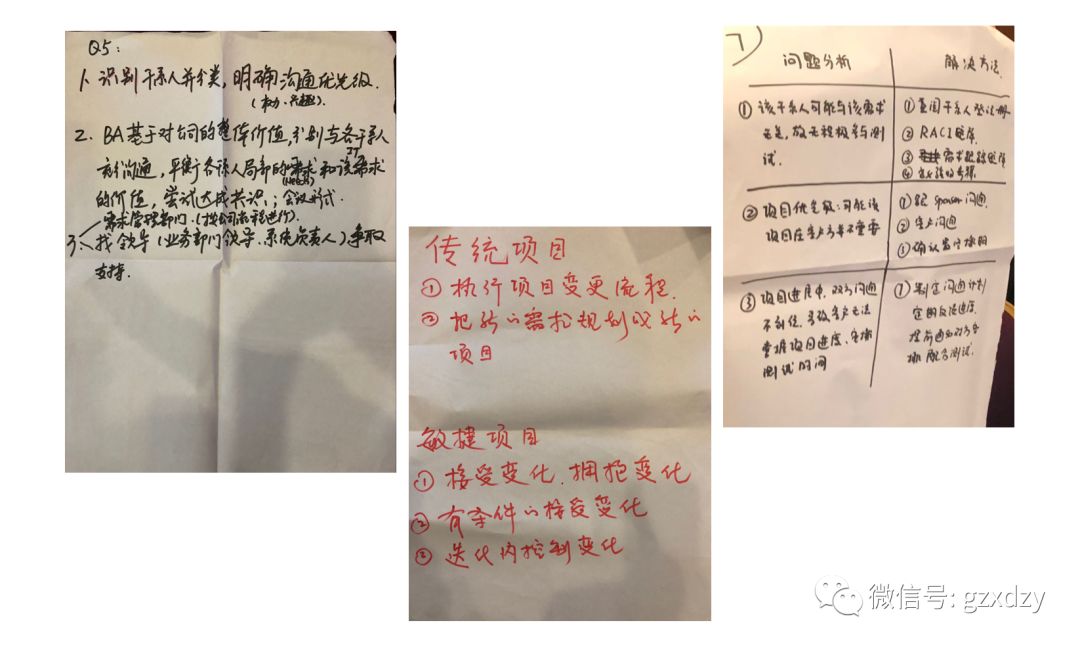 Q5:
1. 识别干系人并分类，明确沟通优先级.
(权力.兴趣).
2. BA基于对公司的整体价值，分别与各干系人
进行沟通，平衡各干系人局部的需求和该IT需求
(Needs)
的价值，尝试达成共识.；会议形式.
需求管理部门.(找公司流程进行).
3. 找领导(业务部门领导.系统负责人)争取
支持.
传统项目
① 执行项目变更流程.
② 把新的需求规划成新的
项目
敏捷项目
① 接受变化.拥抱变化
② 有条件的接受变化
③ 迭代内控制变化
7)
问题分析
解决方法.
① 该干系人可能与该需求
无关，故无积极参与测
试.
① 查阅干系人登记册
② RACI矩阵
③ 需求跟踪矩阵
④
② 项目优先级:可能该
项目在客户方并不重要
① 跟 sponsor 沟通.
② 客户沟通
③ 项目进展中，双方沟通
不到位，导致客户无法
掌握项目进度、安排
测试时间
① 制定沟通计划
定期反馈进度.
提前通知对方安
排配合测试.
微信号: gzxdzy